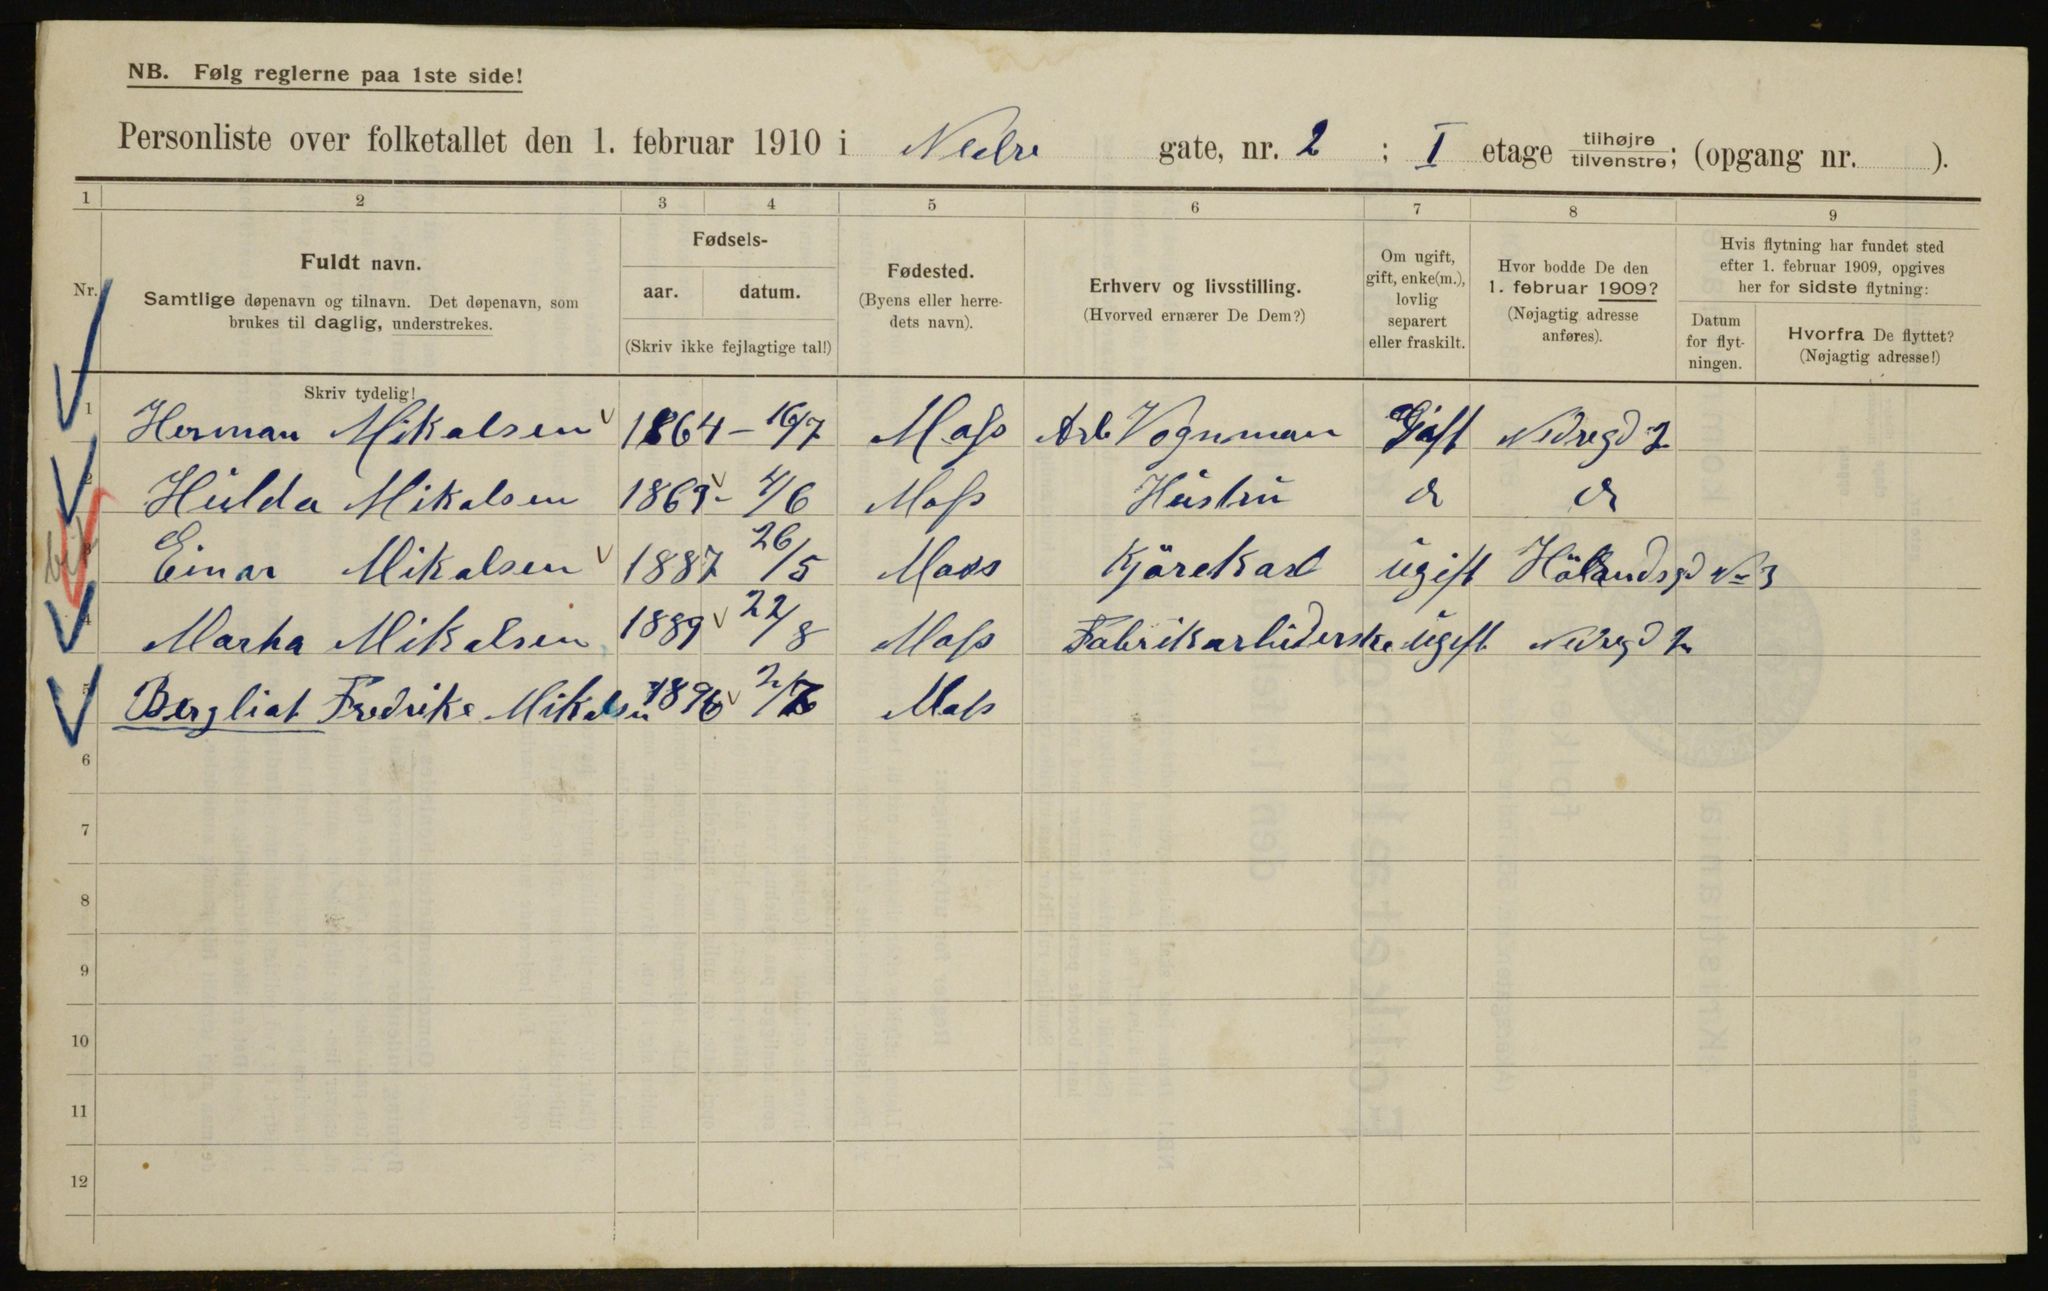 NB. Følg reglerne paa 1ste side!
Personliste over folketallet den 1. februar 1910 i Nedre gate, nr. 2 ; I etage tilhøjre tilvenstre; (opgang nr. ).
1 2 3 4 5 6 7 8 9
Nr.
Fuldt navn.
Samtlige døpenavn og tilnavn. Det døpenavn, som
brukes til daglig, understrekes.
Fødsels-
aar. datum.
(Skriv ikke fejlagtige tal!)
Fødested.
(Byens eller herre-
dets navn).
Erhverv og livsstilling.
(Hvorved ernærer De Dem?)
Om ugift,
gift, enke(m.),
lovlig
separert
eller fraskilt.
Hvor bodde De den
1. februar 1909?
(Nøjagtig adresse
anføres).
Hvis flytning har fundet sted
efter 1. februar 1909, opgives
her for sidste flytning:
Datum
for flyt-
ningen.
Hvorfra De flyttet?
(Nøjagtig adresse!)
Skriv tydelig!
1 Herman Mikalsen 1864 – 16/7 Moss Arb Vognman Gift Nedregd 2
2 Hulda Mikalsen 1869 – 4/6 Moss Hustru do do
3 Einar Mikalsen 1887 26/5 Moss Kjörekarl ugift Hölandsgd No 3
4 Marta Mikalsen 1889 22/8 Moss Fabrikarbeiderske ugift Nedregd 2
5 Bergliot Fredrike Mikalsen 1896 2/7 Moss
6
7
8
9
10
11
12